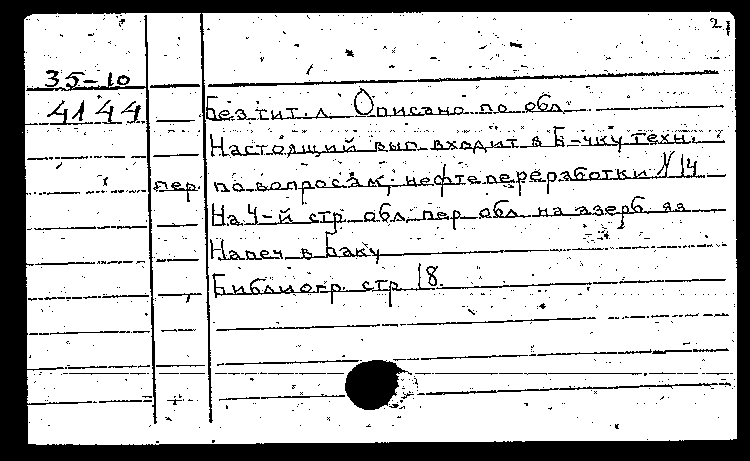 2
35-10
4144 Без тит. л. Описано по обл.
Настоящий вып входит в Б-чку техн.
пер. по вопросам нефтепереработки N 14
На 4-й стр. обл. пер. обл. на азерб. яз
Напеч. в Баку
Библиогр. стр 18.